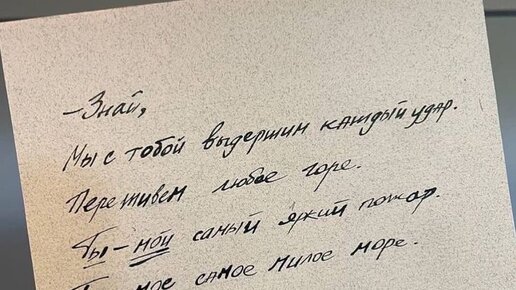 -Знай,
Мы с тобой выдержим каждый удар.
Переживем любое горе.
Ты - мой самый яркий пожар.
мое самое милое море.